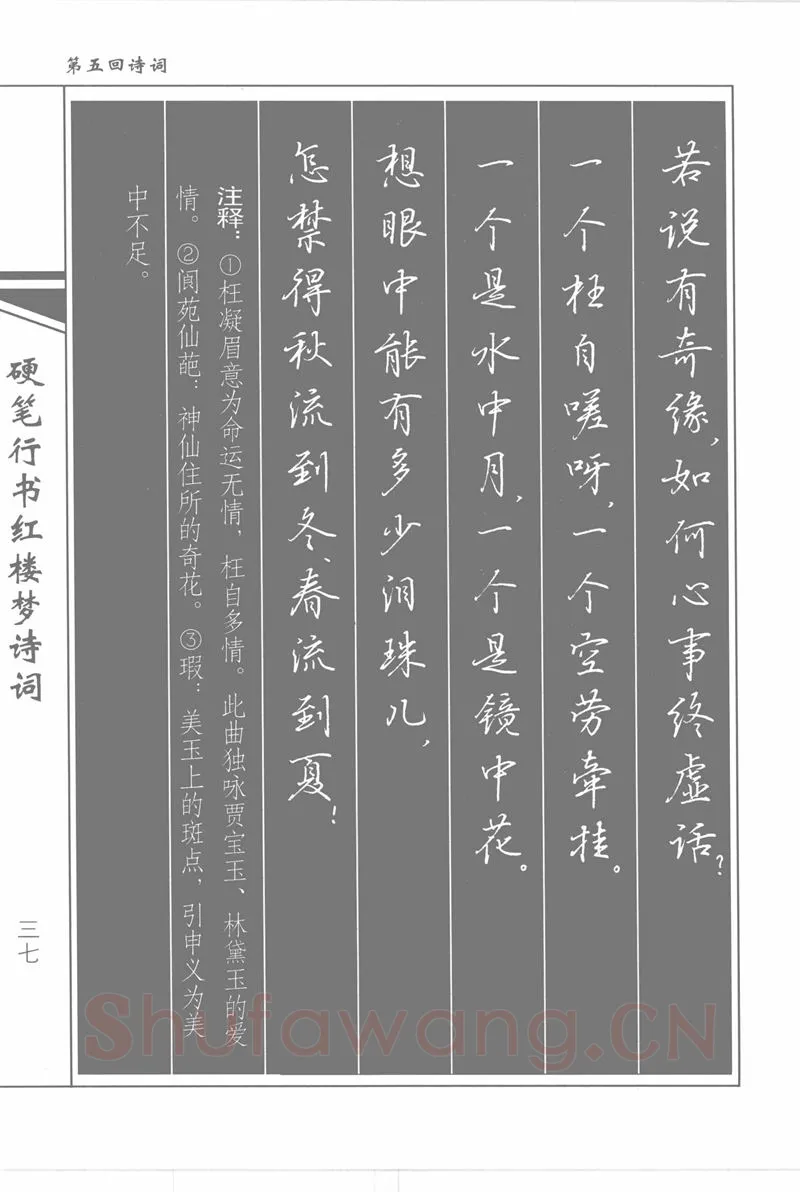 第五回诗词
若说有奇缘,如何心事终虚话?
一个枉自嗟呀,一个空劳牵挂。
一个是水中月,一个是镜中花。
想眼中能有多少泪珠儿,
怎禁得秋流到冬、春流到夏!
注释:①枉凝眉意为命运无情,枉自多情。此曲独咏贾宝玉、林黛玉的爱
情。②阆苑仙葩:神仙住所的奇花。③瑕:美玉上的斑点,引申义为美
中不足。
硬笔行书红楼梦诗词
三七
Shufawang.CN